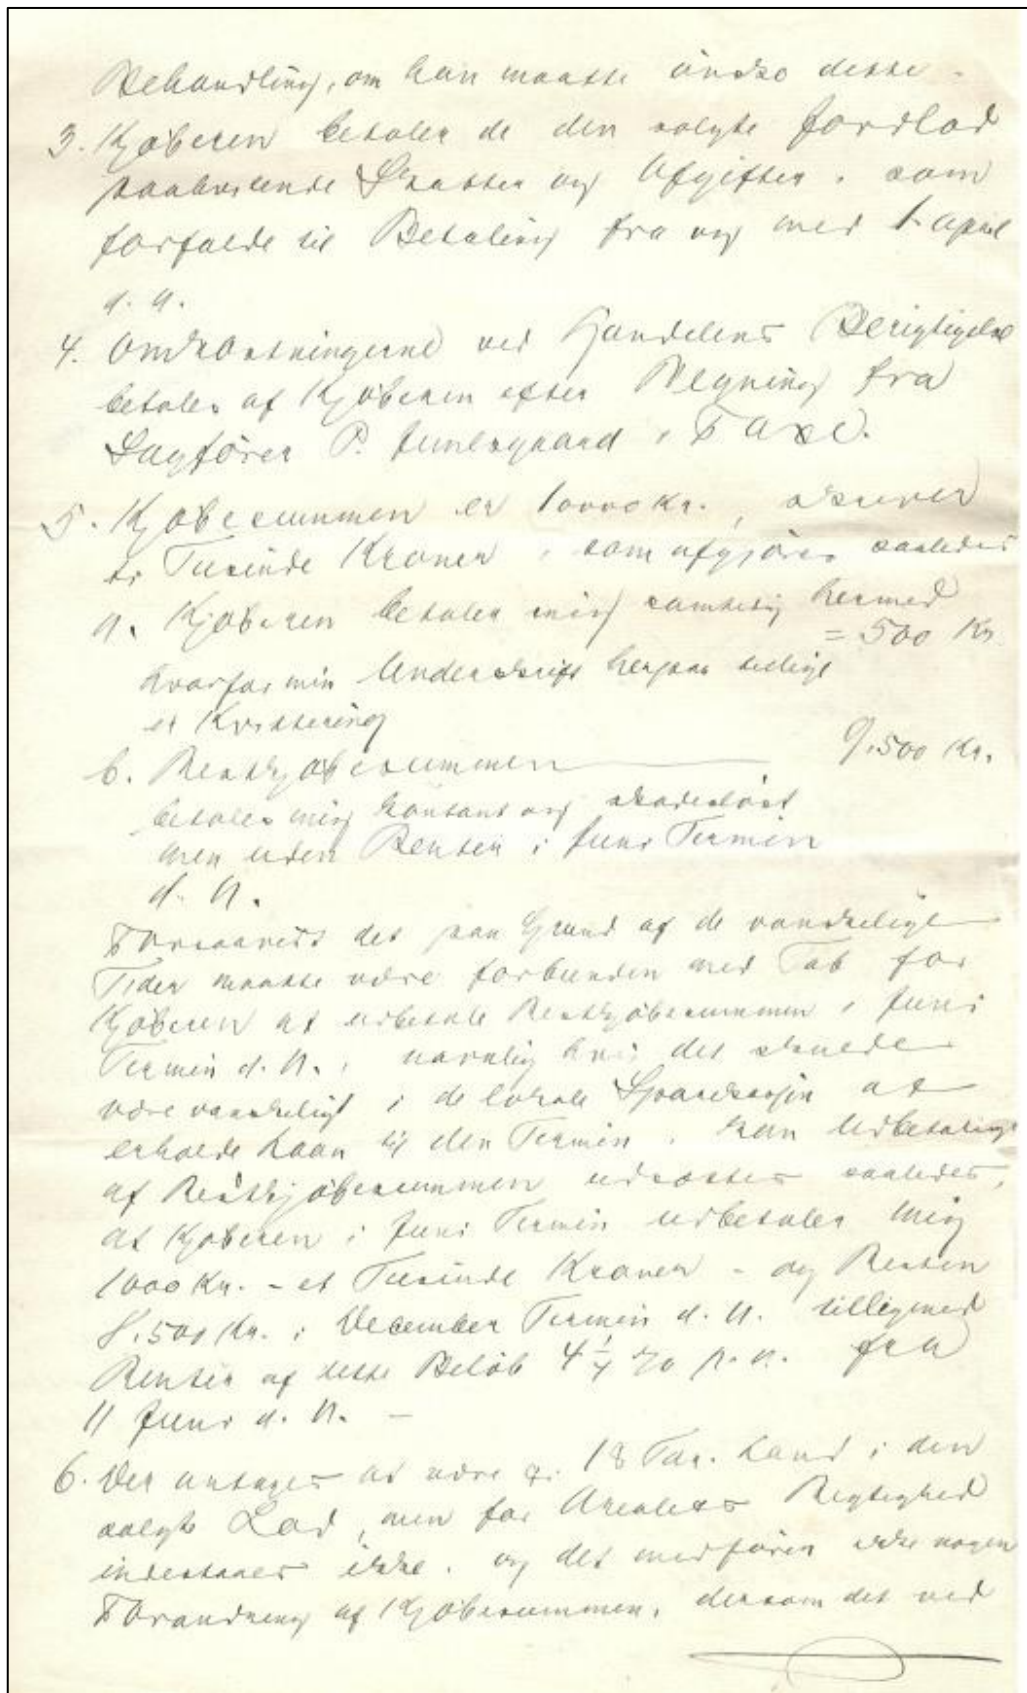 Behandling, om han maatte ønske dette.
3. Kjøberen betaler de den solgte Jordlod
paahvilende Skatter og Afgifter, som
forfalde til Betaling fra og med 1 april
d. A.
4. Omkostningerne ved Handelens Berigtigelse
betales af Kjøberen efter Regning fra
Sagfører P. Juulsgaard i Faxe.
5. Kjøbesummen er 10000 Kr., skriver
ti Tusinde Kroner, som afgjøres saaledes
A. Kjøberen betaler mig samtidig hermed
= 500 Kr
hvorfor min Underskrift herpaa tillige
er Kvittering
b. Restkjøbesummen 9,500 Kr.
betales mig kontant og skadesløst
men uden Renter i Juni Termin
d. A.
Forsaavidt det paa Grund af de vanskelige
Tider maatte være forbunden med Tab for
Kjøberen at udbetale Restkjøbesummen i Juni
Termin d. A., navnlig hvis det skulde
være vanskeligt i de lokale Sparekasser at
erholde Laan til den Termin, kan Udbetaling
af Restkjøbesummen udsættes saaledes,
at Kjøberen i Juni Termin udbetaler mig
1000 Kr. - et Tusinde Kroner - og Resten
8,500 Kr. i December Termin d. A. tilligemed
Renter af dette Beløb 4 1/4 % p. a. fra
11 Juni d. A. -
6. Der antages at være 18 Tdr. Land i den
solgte Lod, men for Arealets Rigtighed
indestaaes ikke, og det medfører ikke nogen
Forandring af Kjøbesummen, dersom det ved